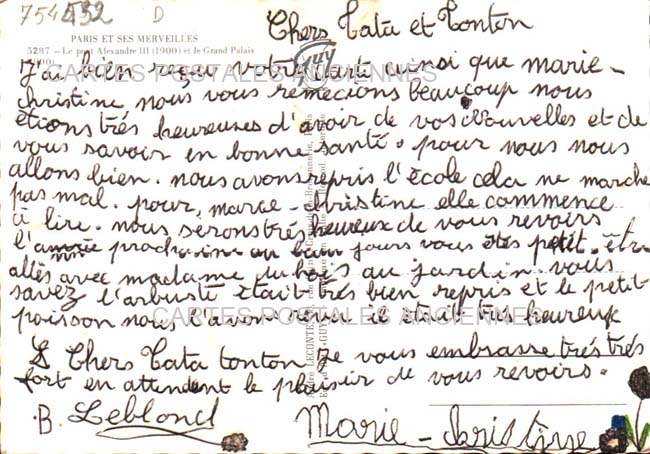 754532 D
Chers Tata et Tonton
PARIS ET SES MERVEILLES
5287 - Le pont Alexandre III (1900) et le Grand Palais
(1900)
GUY
J'ai bien reçu votre carte ainsi que marie -
christine nous vous remecions beaucoup nous
étions trés heureuses d'avoir de vos Nouvelles et de
vous savoir en bonne santé. pour nous nous
allons bien. nous avons repris l'école cela ne marche
pas mal. pour, marie - christine elle commence
à lire. nous serons trés heureux de vous revoirs
l'année prochaine au beau jours vous étes petit. étre
allés avec madame dubois au jardin. vous
savez l'arbuste était trés bien repris et le petit
poisson nous l'avons revue il était trés heureux
Chers Tata tonton je vous embrasse trés trés
fort en attendent le plaisir de vous revoirs.
B. Leblond
Marie - christine
CARTES POSTALES ANCIENNES
CARTES POSTALES ANCIENNES